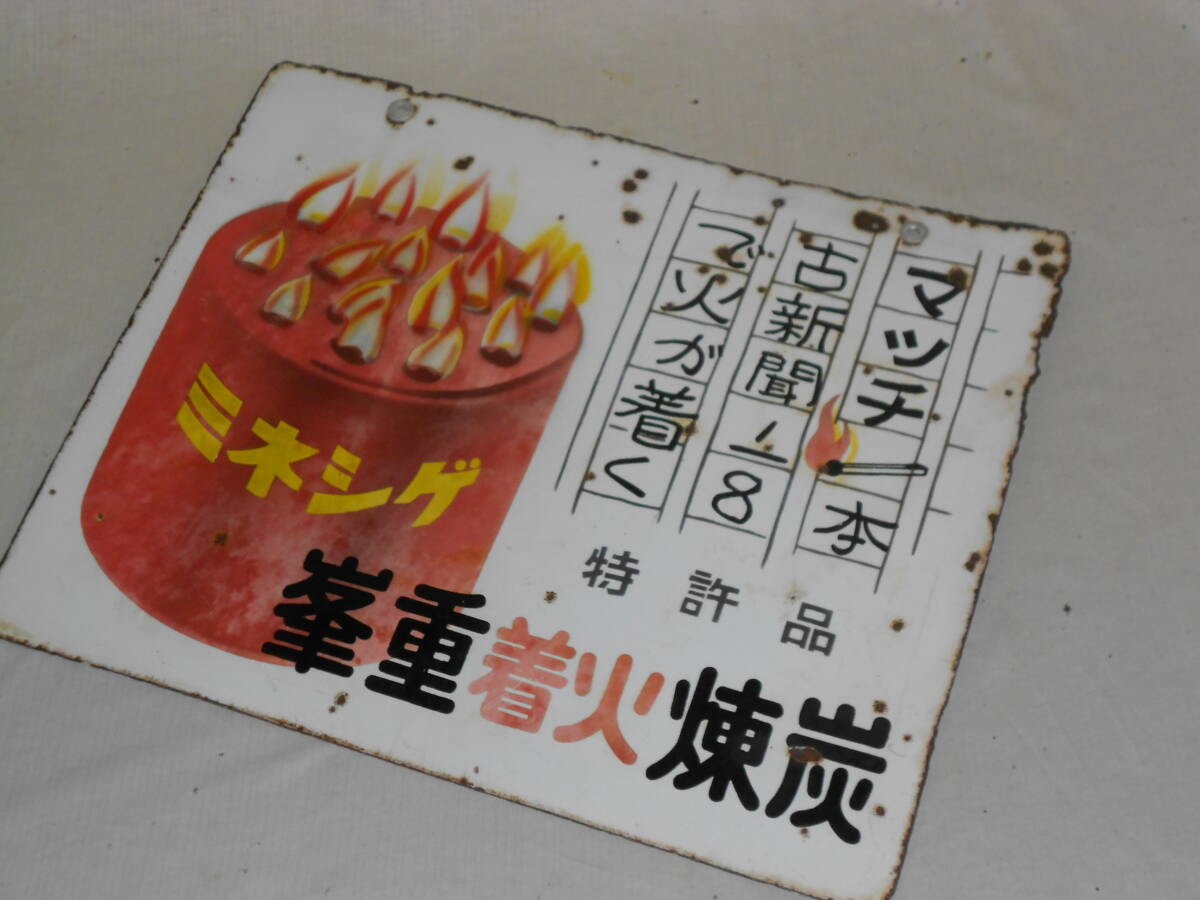 マッチ一本
古新聞1/8
で火が着く
特許品
ミネシゲ
峯重着火煉炭